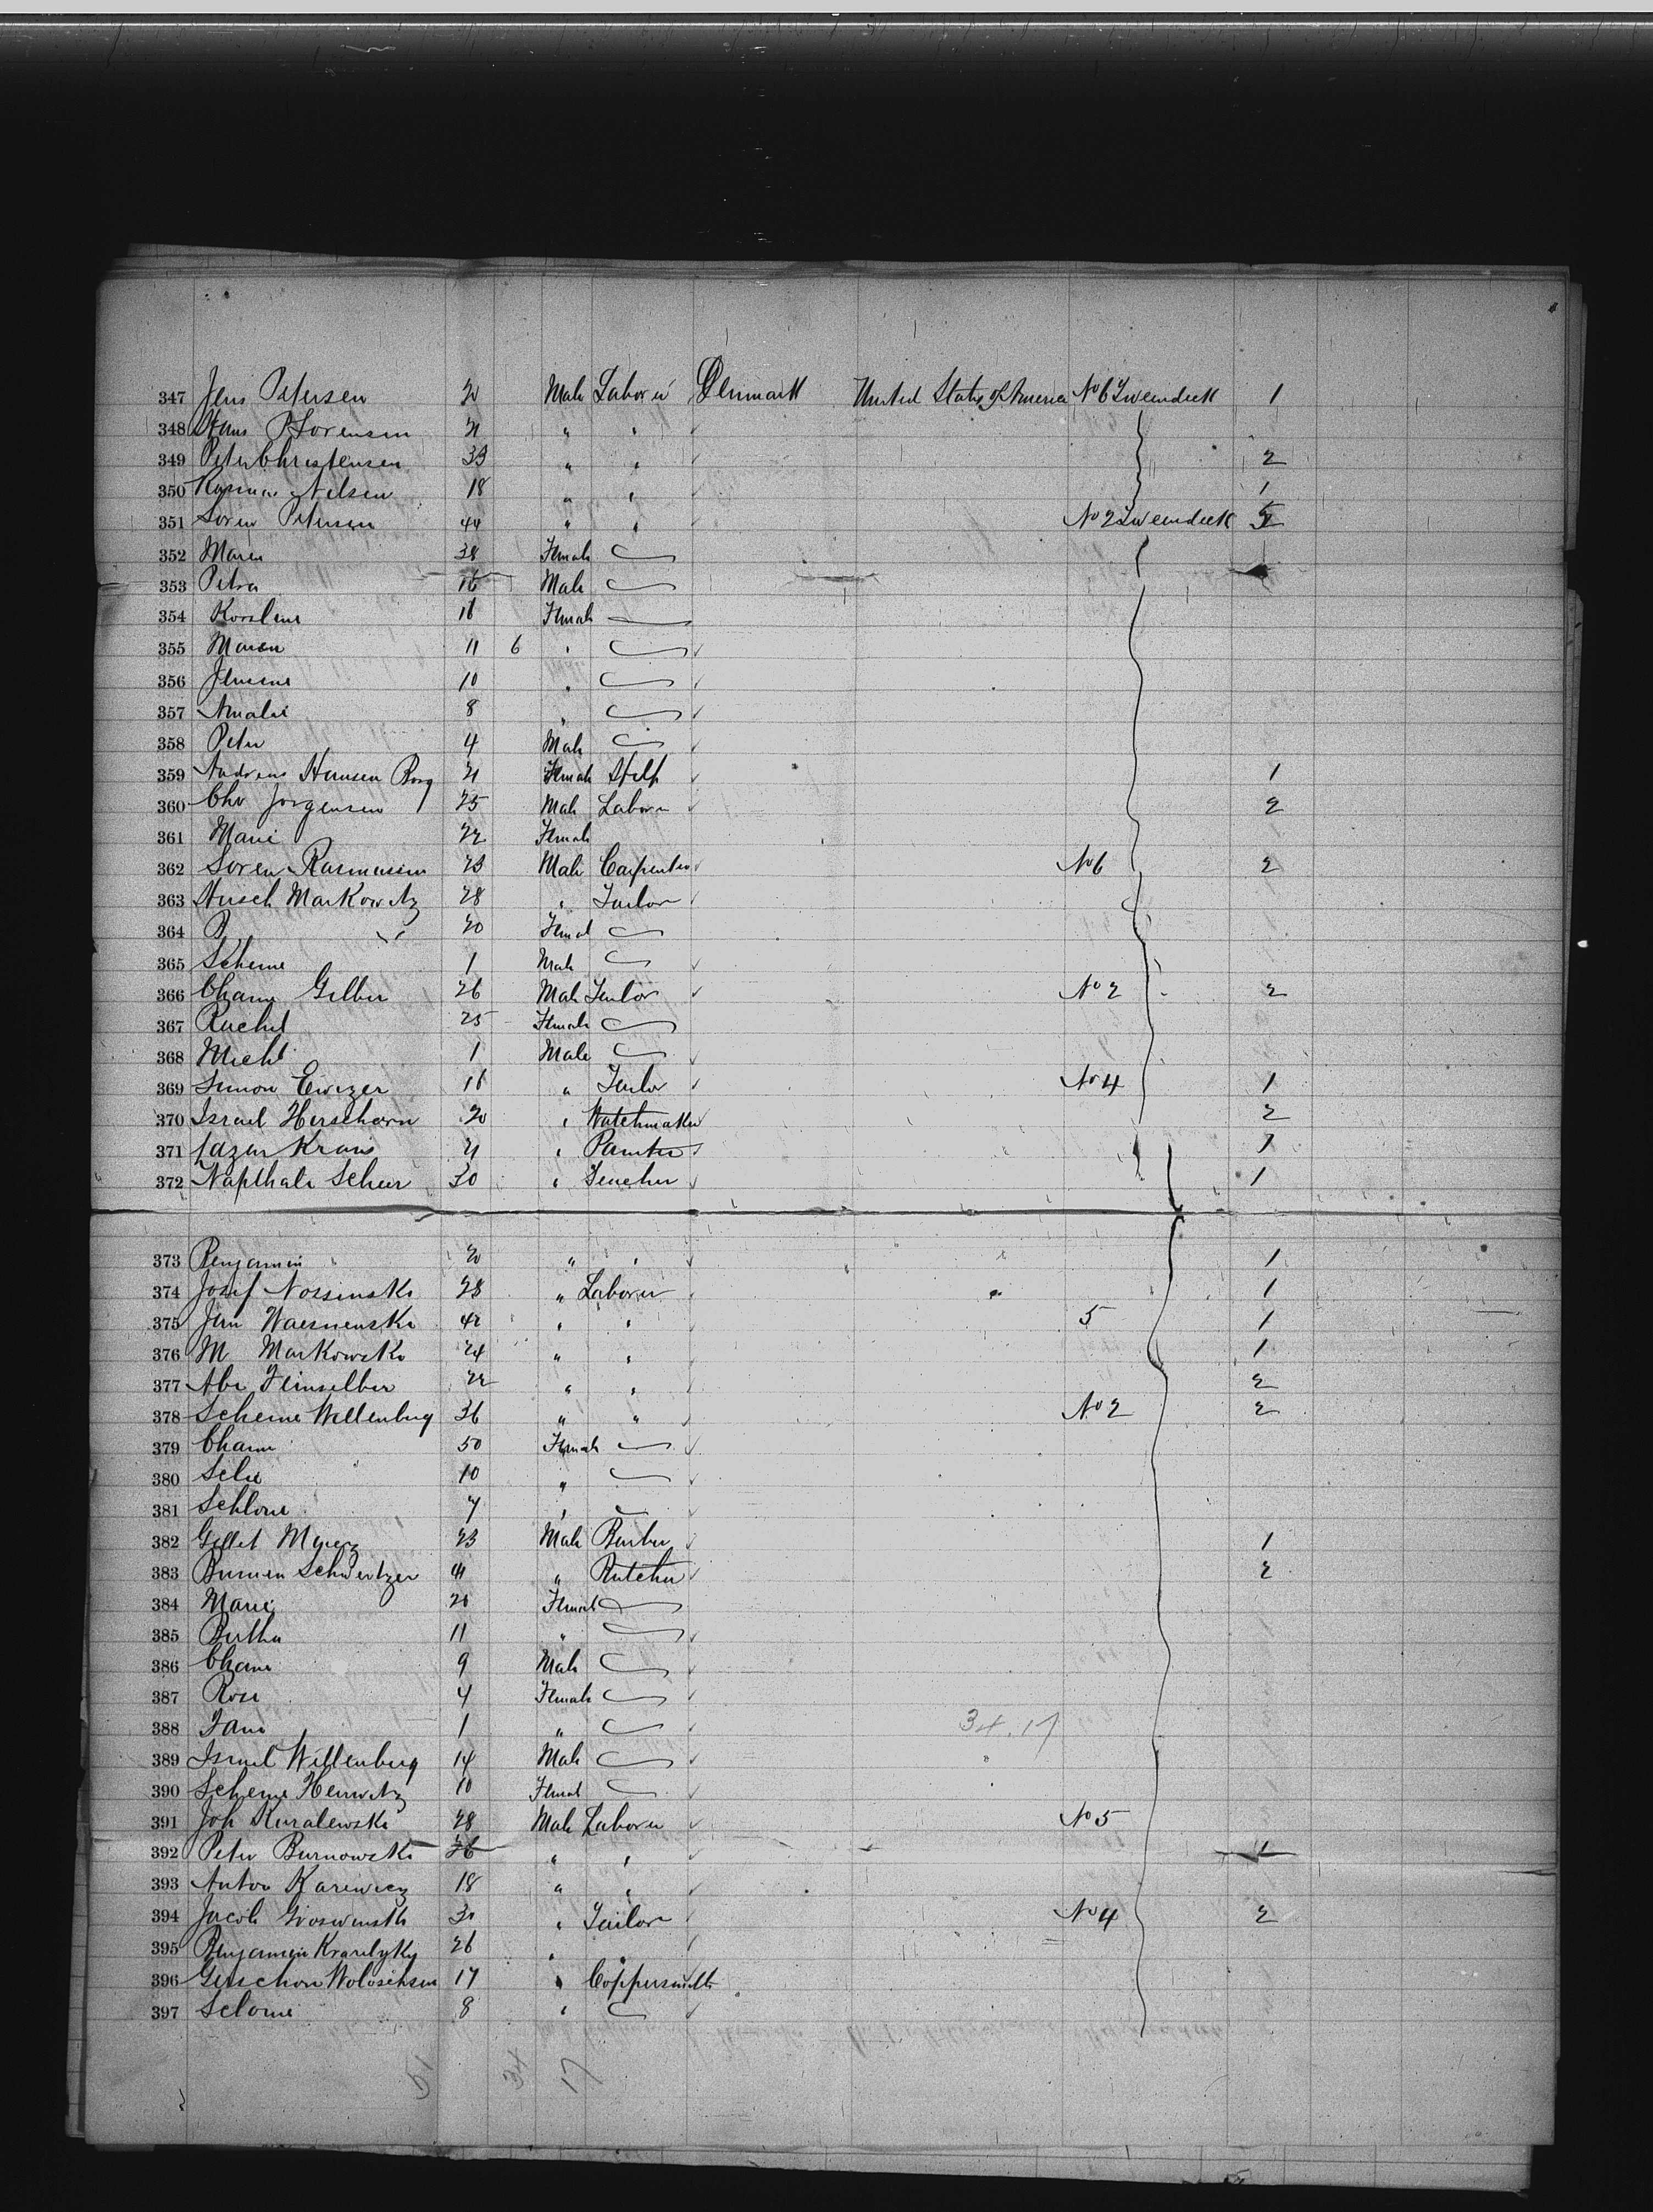 347 Jens Petersen 20 Male Laborer Denmark United States of America No 6 Zweindeck 1
348 Hans P Sorensen 21 " "
349 Peter Christensen 33 " " 2
350 Rasmus Nelsen 18 " " 1
351 Soren Petersen 44 " " No 2 Zweindeck
352 Maren 38 Female
353 Petra 16 Male
354 Female
355 Maren 11 6 "
356 10 "
357 Amalie 8 "
358 Peter 4 Male
359 Andreas Hansen Borg 21 Female Help 1
360 Chr Jorgensen 25 Male Laborer 2
361 Marie 22 Female
362 Soren Rasmussen 23 Male Carpenter No 6 2
363 Hirsch Markowitz 28 " Tailor
364 B 20 Femal
365 Scheme 1 Male
366 Chane Gelber 26 Male Tailor No 2 2
367 Rachel 25 Female
368 Michl 1 Male
369 Simon Ewizer 16 " Tailor No 4 1
370 Israel Herschorn 20 " Watchmaker 2
371 Lazar Krans 21 " Painter 1
372 Napthali Scheer 30 " Teacher 1
373 Benjamin 20 " " 1
374 Josef Nossinski 28 " Laborer 1
375 Jan Waesnenski 42 " " 5 1
376 M Markowski 24 " " 1
377 Abe Feinselber 22 " " 2
378 Scheine Wellenberg 36 " " No 2 2
379 Chane 50 Female
380 Selie 10 "
381 Schlone 7 "
382 Gillet Myerz 23 Male Barber 1
383 Schwertzer 41 " Butcher 2
384 Marie Female
385 Bertha 11 "
386 Chane 9 Male
387 Rose 4 Female
388 Jane 1 " 34.17
389 Israel Wellenberg 14 Male
390 Scheme Herwitz 10 Femal
391 Joh Kuralewski 28 Male Laborer No 5
392 Peter Burnowski 26 " " 1
393 Anton Karewicz 18 " "
394 Jacob 30 " Tailor No 4 2
395 Benjamin 26 " "
396 Gerschon Woloschsen 17 " Coppersmith
397 Selome 8 "
34 17